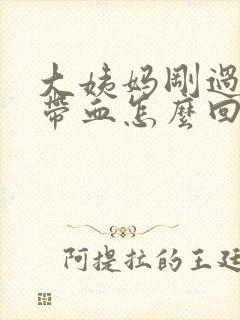 大姨妈剛過
帶血怎麼回
阿提拉的王廷